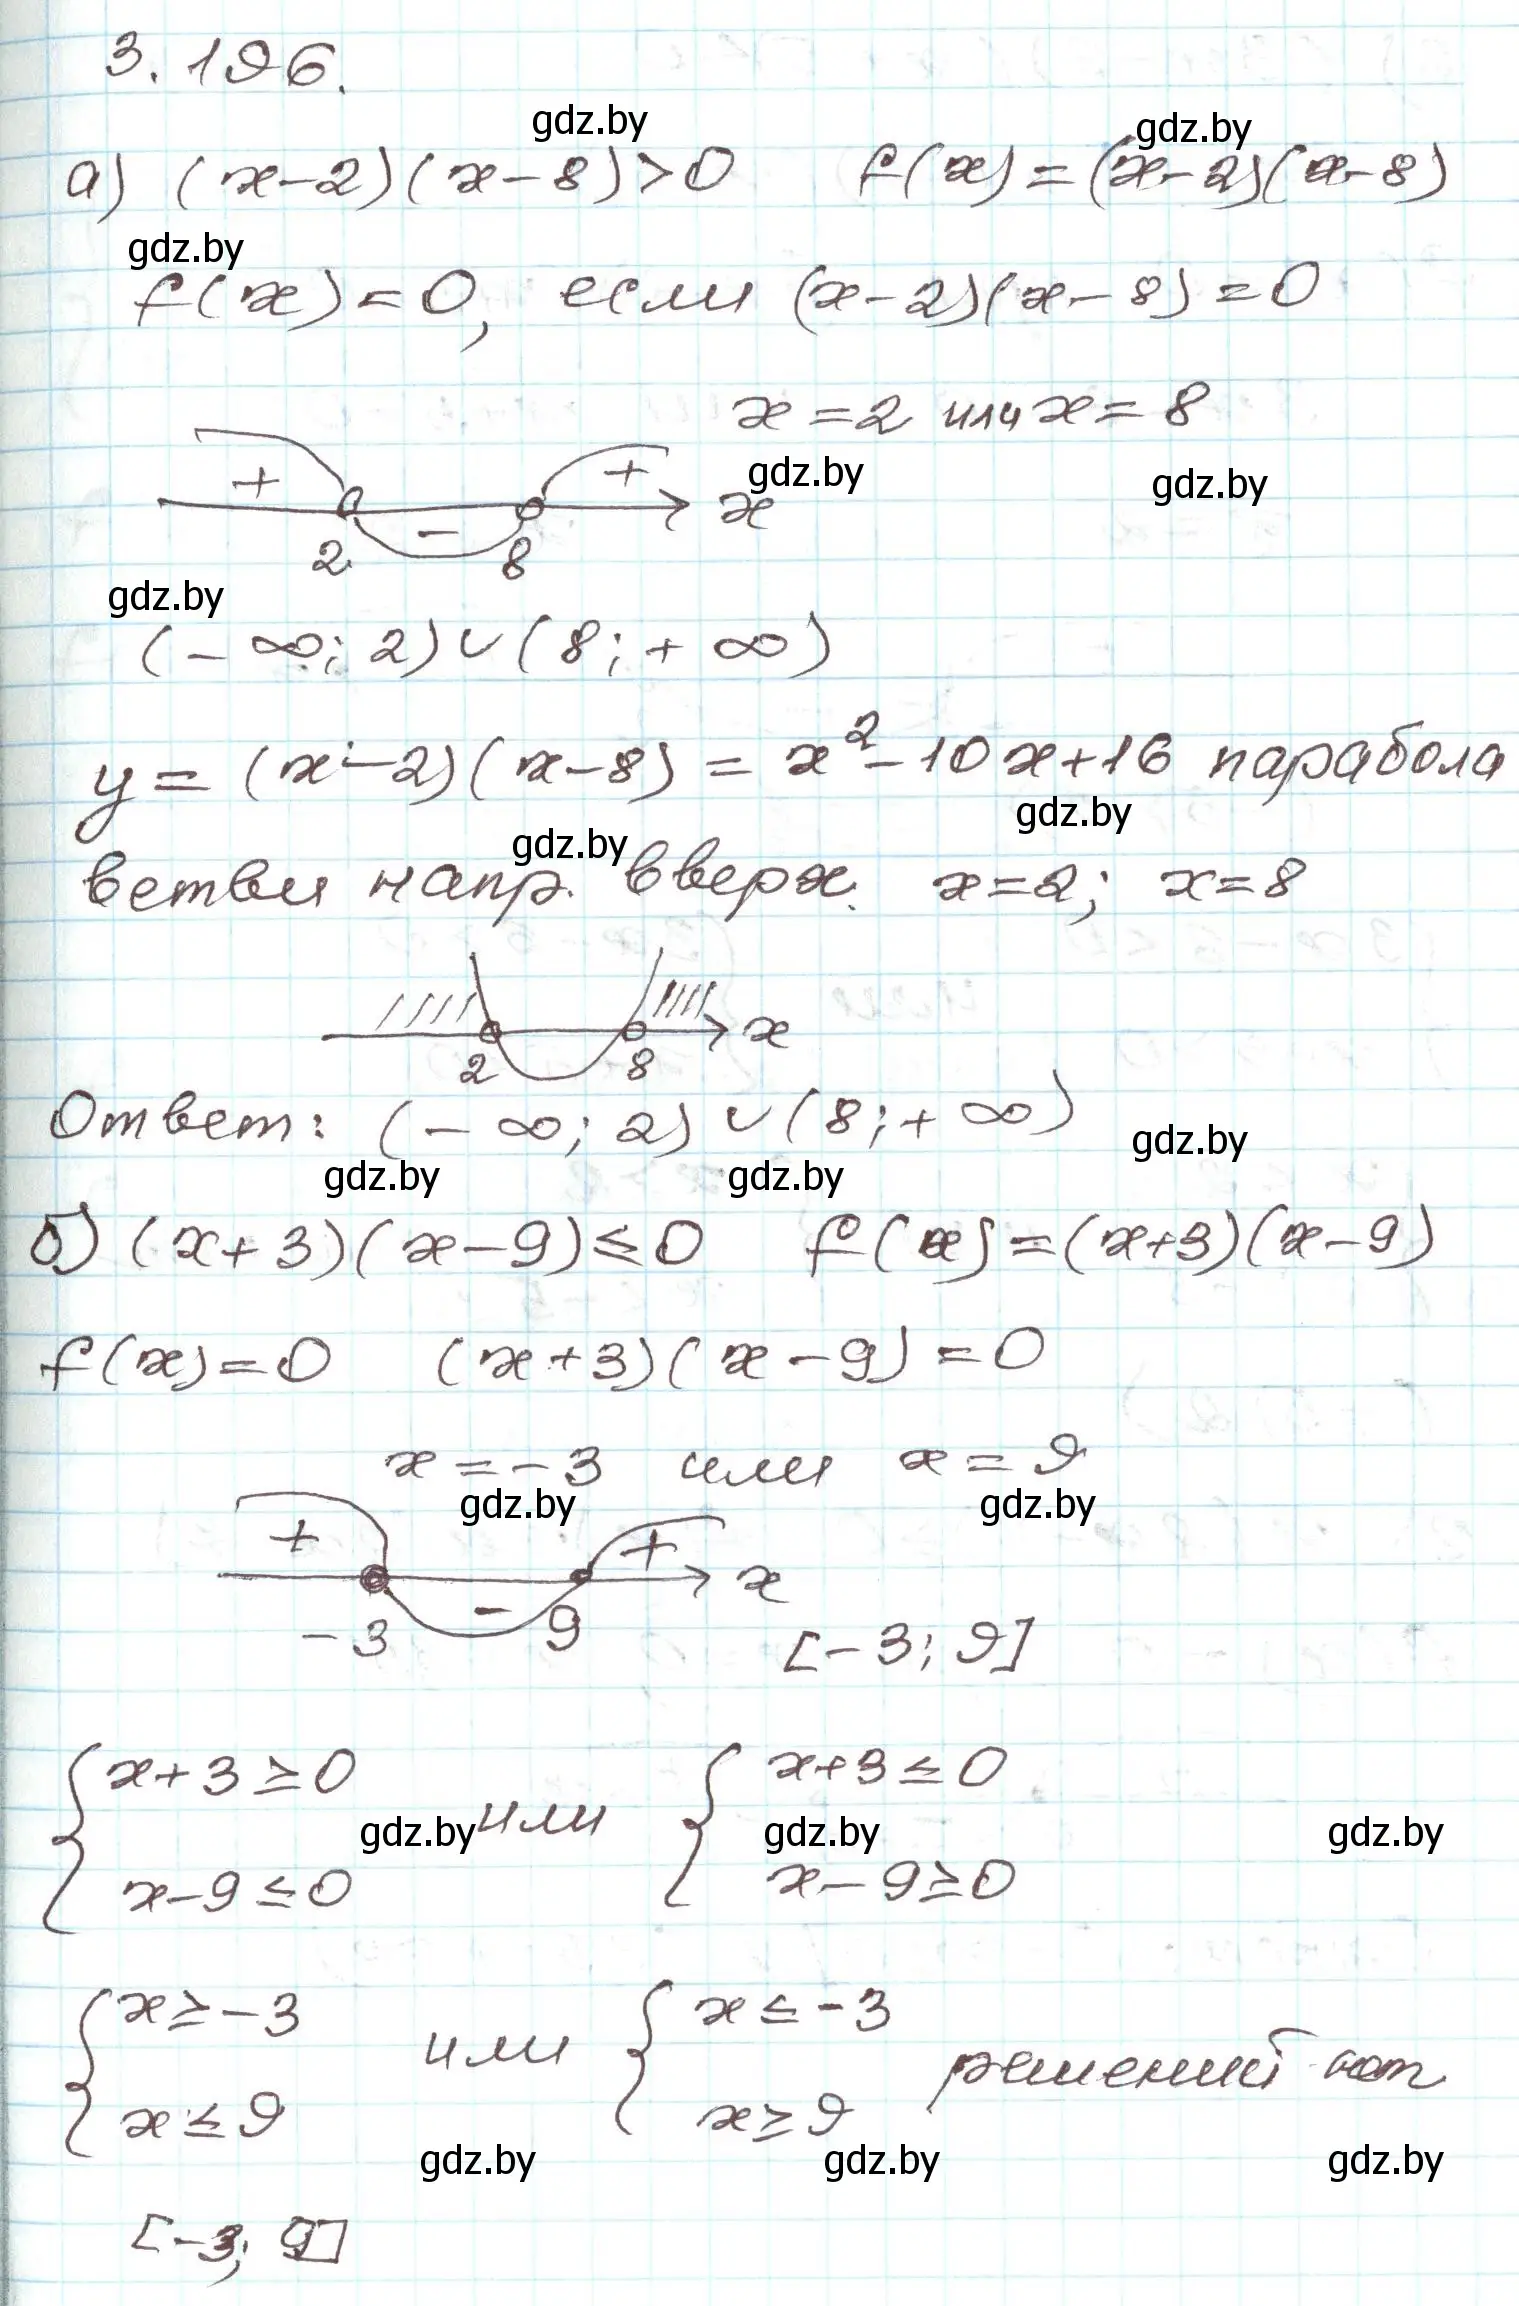 3.196.
gdz.by gdz.by
а) (x-2)(x-8)>0 f(x)=(x-2)(x-8)
gdz.by
f(x)=0, если (x-2)(x-8)=0
x=2 или x=8
gdz.by gdz.by
+ - + x
2 8
gdz.by
(-∞; 2)∪(8;+∞)
y=(x-2)(x-8)=x²-10x+16 парабола
gdz.by gdz.by
ветви напр. вверх. x=2; x=8
x
2 8
Ответ: (-∞; 2)∪(8;+∞)
gdz.by gdz.by gdz.by
б) (x+3)(x-9)≤0 f(x)=(x+3)(x-9)
f(x)=0 (x+3)(x-9)=0
x=-3 или x=9
gdz.by gdz.by
+ - + x
-3 9 [-3; 9]
{x+3≥0 или {x+3≤0
gdz.by gdz.by gdz.by
x-9≤0 x-9≥0
{x≥-3 или {x≤-3 решений нет
x≤9 x≥9
gdz.by gdz.by gdz.by
[-3; 9]